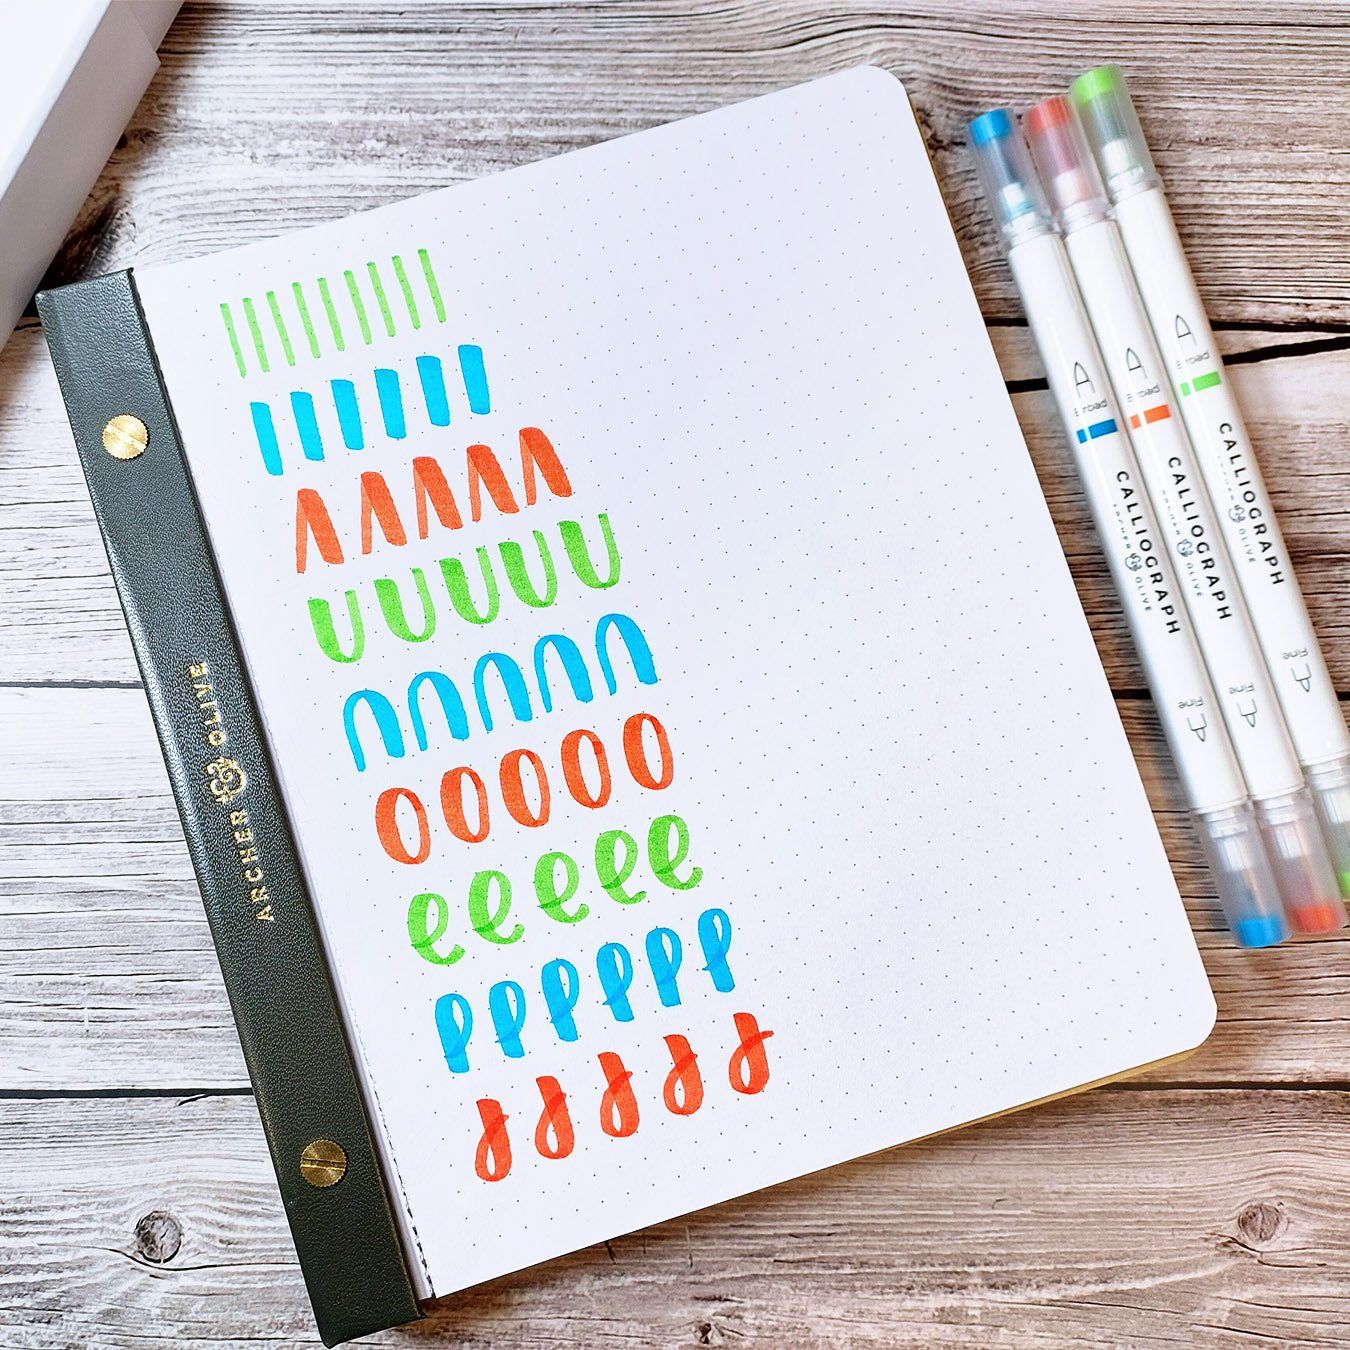 ARCHER & OLIVE
UUUUU
OOOOO
eeeee
A
Broad
CALLIOGRAPH
ARCHER & OLIVE
A
Fine
A
Broad
CALLIOGRAPH
ARCHER & OLIVE
A
Fine
A
Broad
CALLIOGRAPH
ARCHER & OLIVE
A
Fine